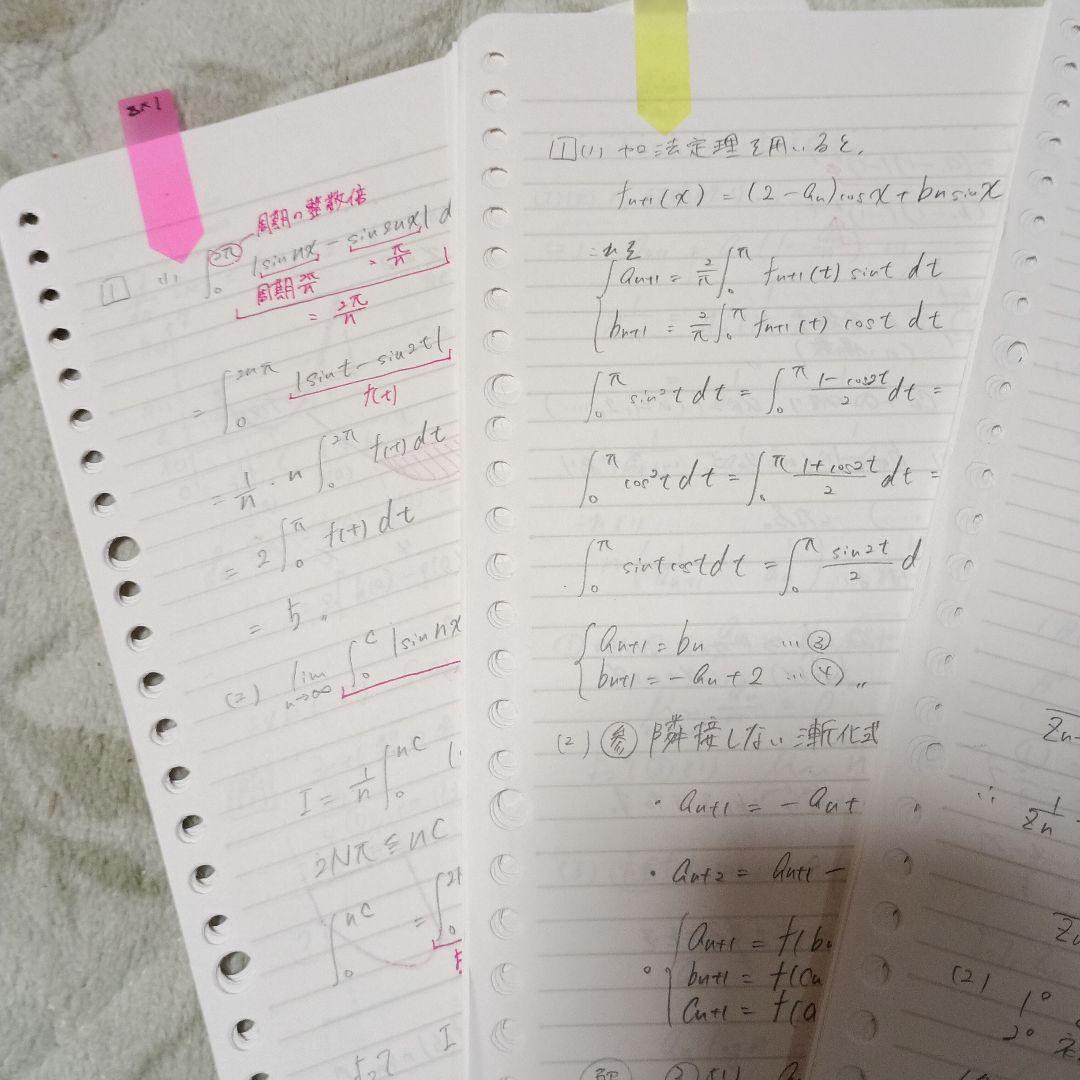 周期の整数倍
1 (1) ∫₀^{2π} |sin nx − sin 2nx| d
周期 2π/n = π/n
= 2π/n
= ∫₀^{2nπ} |sin t − sin 2t|
f(t)
= 1/n · n ∫₀^{2π} f(t) dt
= 2 ∫₀^{π} f(t) dt
= 5 〃
(2) lim_{n→∞} ∫₀^{c} |sin nx
I = 1/n ∫₀^{nc}
2Nπ ≦ nc
∫₀^{nc} = ∫₀
I
1 (1) 加法定理を用いると,
f_{n+1}(x) = (2 − a_n) cos x + b_n sin x
a_{n+1} = 2/π ∫₀^{π} f_{n+1}(t) sin t dt
b_{n+1} = 2/π ∫₀^{π} f_{n+1}(t) cos t dt
∫₀^{π} sin² t dt = ∫₀^{π} (1 − cos 2t)/2 dt =
∫₀^{π} cos² t dt = ∫₀^{π} (1 + cos 2t)/2 dt =
∫₀^{π} sin t cos t dt = ∫₀^{π} (sin 2t)/2 d
a_{n+1} = b_n … ③
b_{n+1} = − a_n + 2 … ④ 〃
(2) 参 隣接しない漸化式
・ a_{n+1} = − a_n +
・ a_{n+2} = a_{n+1} −
a_{n+1} = f(b
b_{n+1} = f(c_n
c_{n+1} = f(a
∴ 1/z_n
(2) 1°
2°